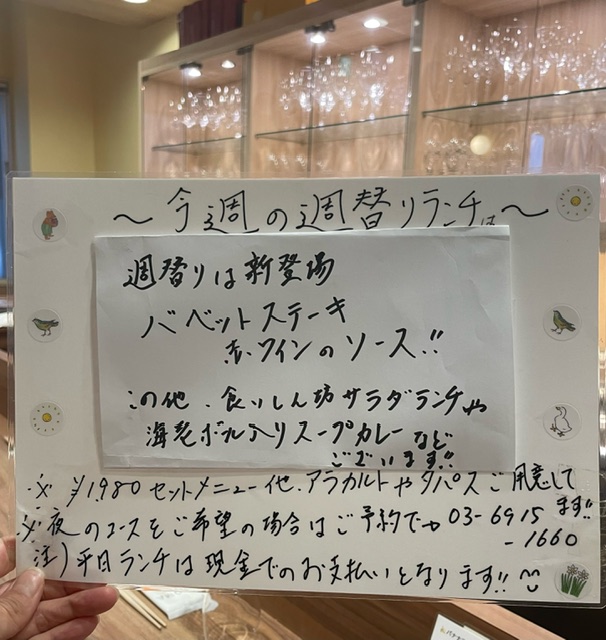 〜今週の週替りランチは〜
週替りは新登場
バベットステーキ
赤ワインのソース!!
この他、食いしん坊サラダランチや
海老ボール入りスープカレーなど
ございます!!
※ ¥1,980セットメニュー他、アラカルトやタパスご用意して
ます!!
※夜のコースをご希望の場合はご予約で 03-6915
-1660
注)平日ランチは現金でのお支払いとなります!!